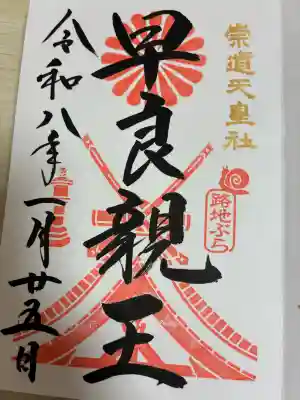 崇道天皇社
路地ぶら
早良親王
令和八年一月廿五日